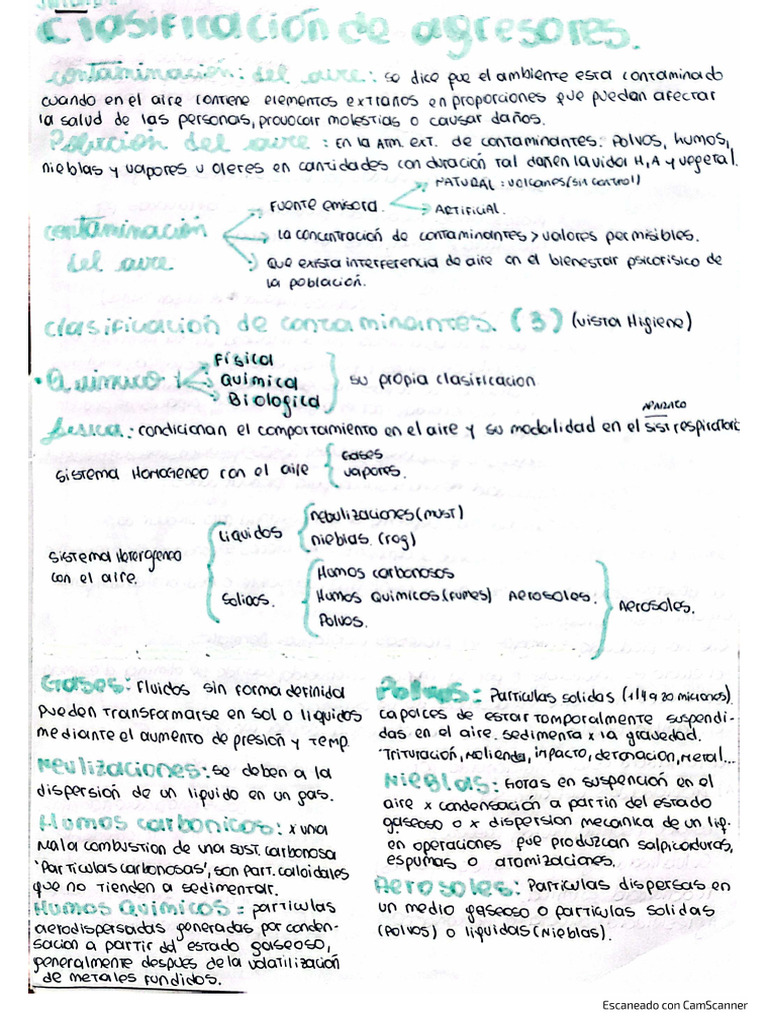 Clasificación de agresores.
contaminación: del aire: se dice que el ambiente esta contaminado
cuando en el aire contiene elementos extraños en proporciones que puedan afectar
la salud de las personas, provocar molestias o causar daños.
Polución del aire: En la ATM. ext. de contaminantes: Polvos, humos,
nieblas y vapores u olores en cantidades con duración tal dañen la vida H, A y vegetal.
contaminación
del aire
Fuente emisora.
NATURAL: volcanes (sin control)
ARTIFICIAL.
La concentración de contaminantes > valores permisibles.
que exista interferencia de aire en el bienestar psicofísico de
la población.
clasificación de contaminantes. (3) (vista Higiene)
• Químico
Física
Química
Biologica
su propia clasificacion
física: condicionan el comportamiento en el aire y su modalidad en el sist respirator
APARATO
sistema Homogeneo con el aire
Gases
vapores.
sistema Heterogeneo
con el aire.
Liquidos
nebulizaciones (must)
nieblas. (fog)
Solidos.
Humos carbonosos
Humos Químicos (fumes) Aerosoles.
Polvos.
Aerosoles.
Gases: Fluidos sin forma definida
pueden transformarse en sol o liquidos
mediante el aumento de presión y Temp.
Neulizaciones: se deben a la
dispersión de un liquido en un gas.
Humos carbonicos: x una
mala combustion de una sust. carbonosa
'Particulas carbonosas', son part. caloidales
que no tienden a sedimentar.
Humos Químicos: particulas
aerodispersadas generadas por conden-
sacion a partir dd estado gaseoso,
generalmente despues de la volatilización
de metales fundidos.
Polvos: Particulas solidas (1/4 a 20 micrones).
capaces de estar temporalmente suspendi-
das en el aire. sedimenta x la gravedad.
Trituración, Molienda, inpacto, detonacion, Metal...
Nieblas: Gotas en suspención en el
aire x condensación a partin del estado
gaseoso o x dispersion mecanica de un liq.
en operaciones que produzcan salpicaduras,
espumas o atomizaciones.
Aerosoles: Particulas dispersas en
un medio gaseoso o particulas solidas
(Polvos) o liquidas (Nieblas).
Escaneado con CamScanner